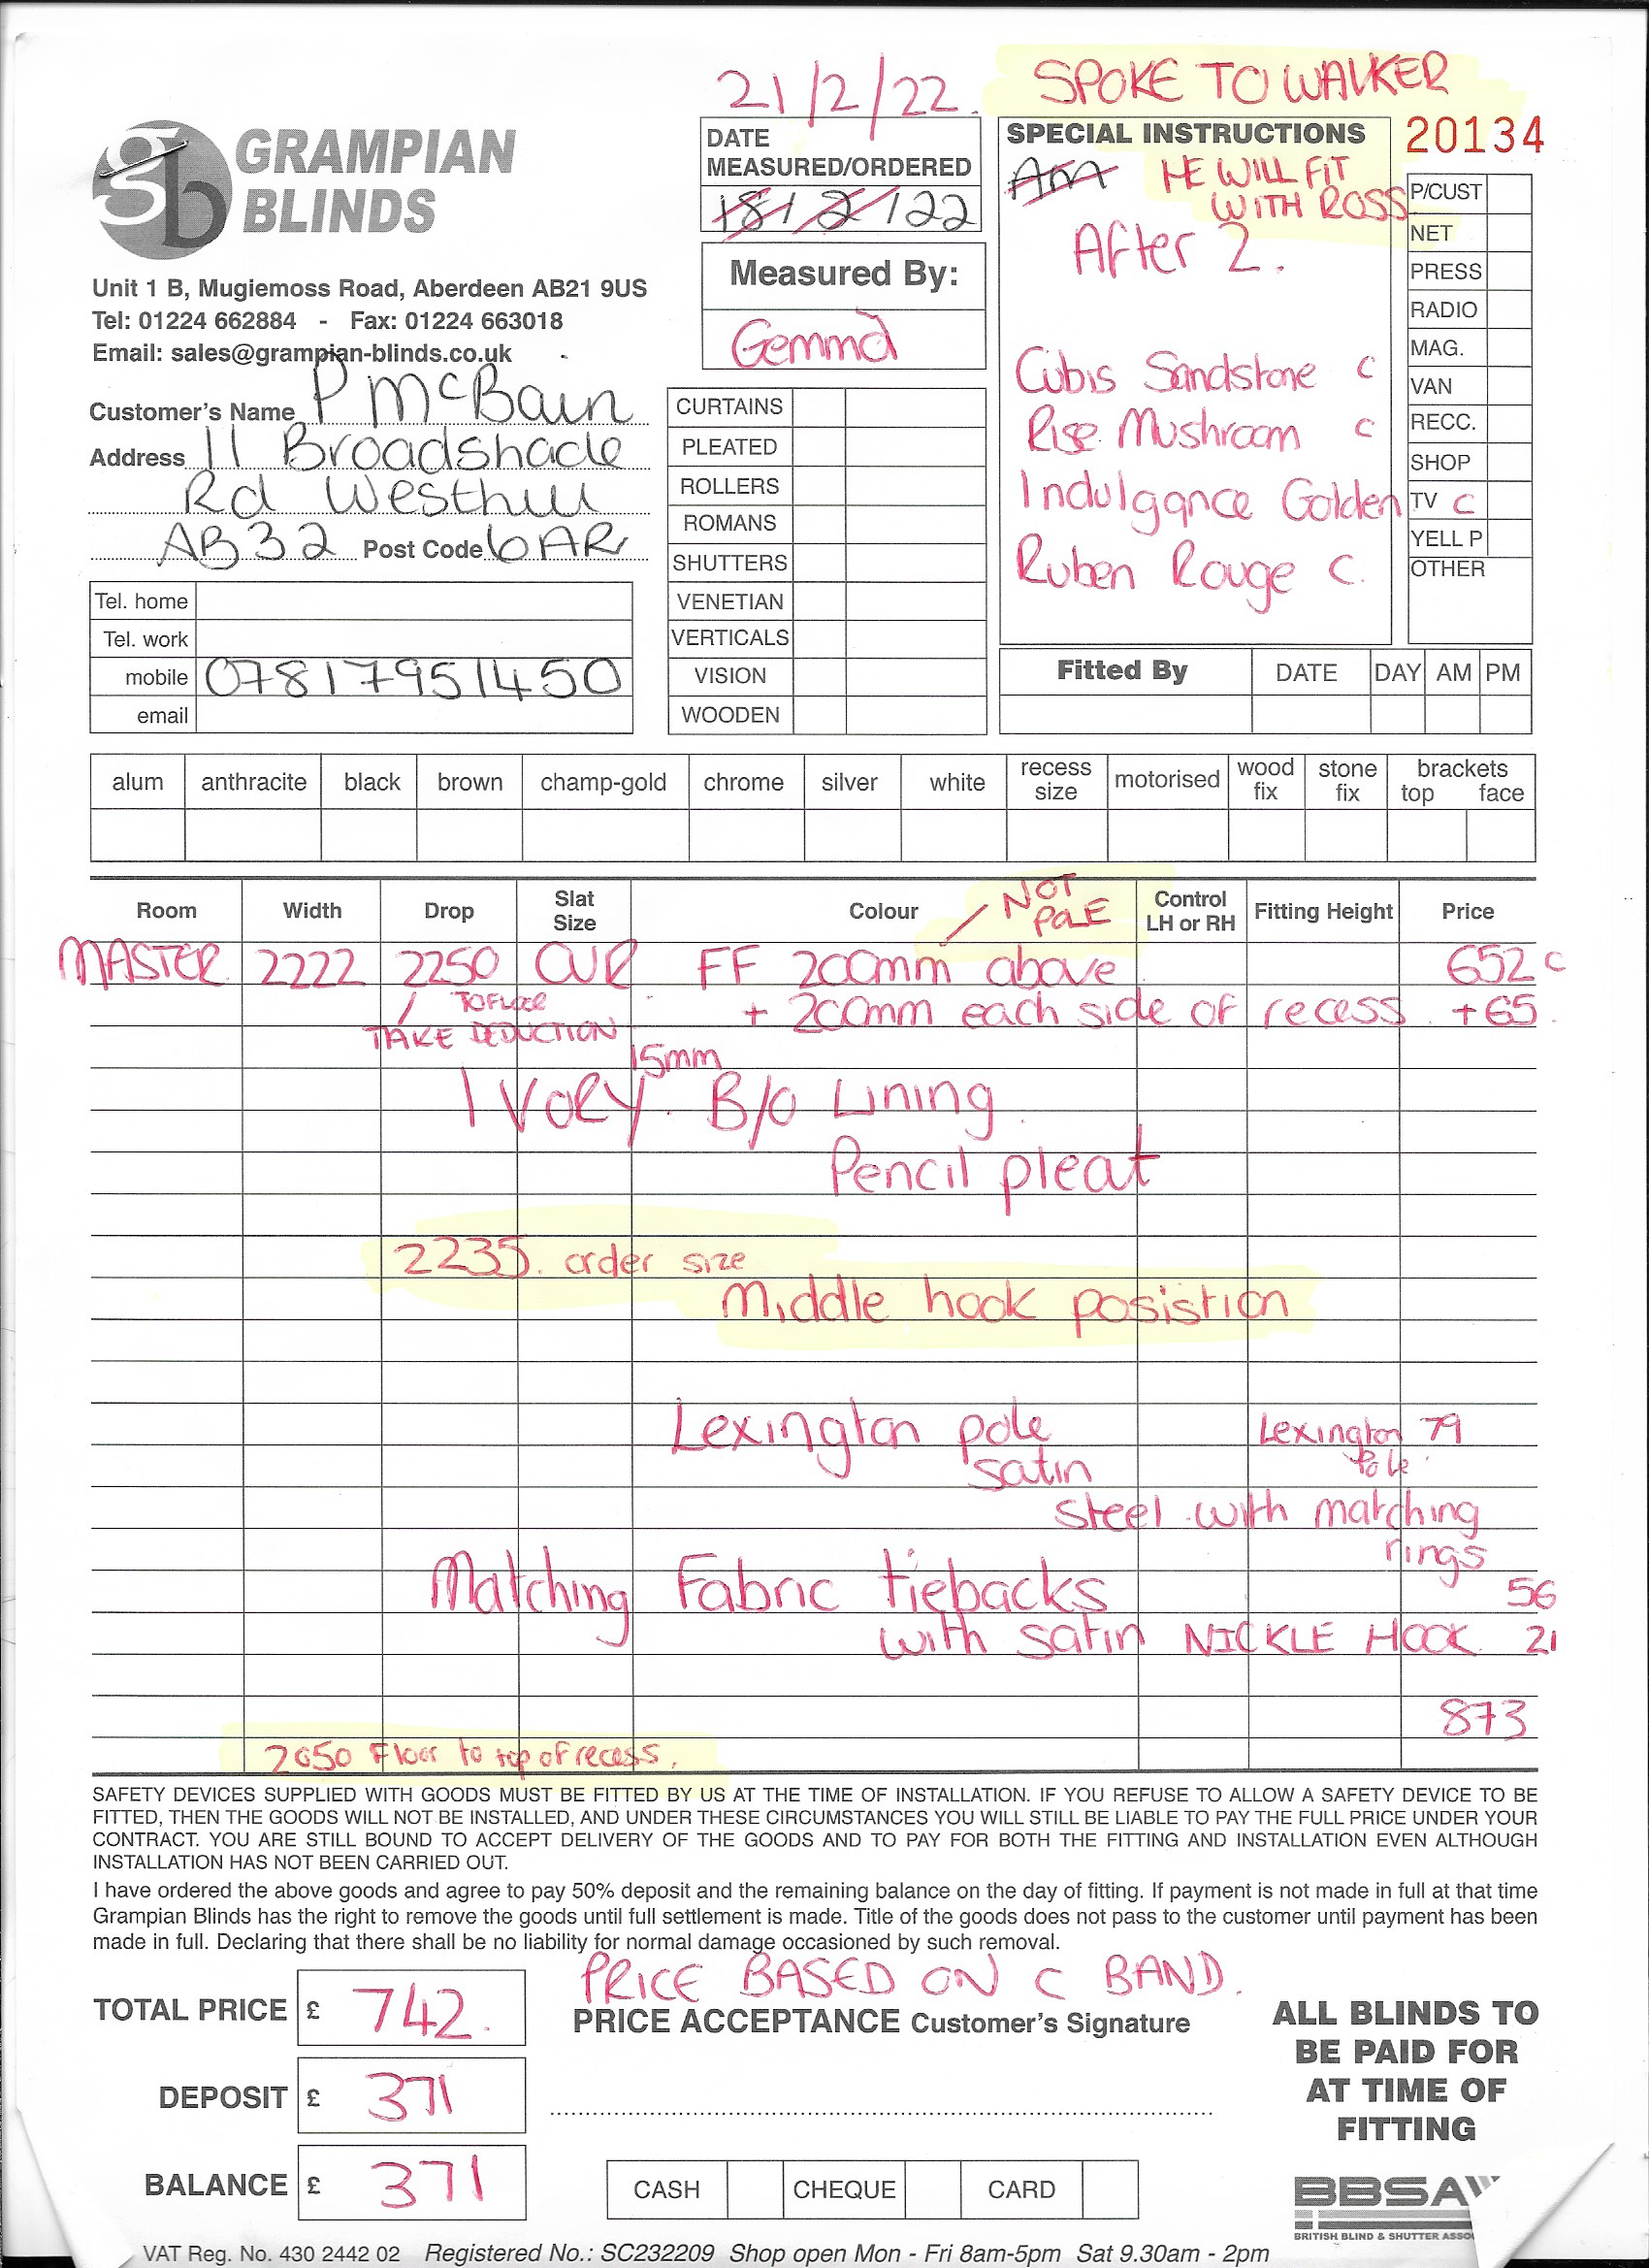 21/2/22.
SPOKE TO WALKER
GRAMPIAN
BLINDS
DATE
MEASURED/ORDERED
18/2/22
SPECIAL INSTRUCTIONS
20134
AM HE WILL FIT
WITH ROSS
After 2.
Unit 1 B, Mugiemoss Road, Aberdeen AB21 9US
Tel: 01224 662884 - Fax: 01224 663018
Email: sales@grampian-blinds.co.uk
Measured By:
Gemma
Customer's Name P McBain
Address 11 Broadshade
Rd Westhill
AB32 Post Code 6AR
Tel. home
Tel. work
mobile 07817951450
email
CURTAINS
PLEATED
ROLLERS
ROMANS
SHUTTERS
VENETIAN
VERTICALS
VISION
WOODEN
Cubis Sandstone C
Rise Mushroom C
Indulgance Golden C
Ruben Rouge C.
P/CUST
NET
PRESS
RADIO
MAG.
VAN
RECC.
SHOP
TV
YELL P
OTHER
Fitted By DATE DAY AM PM
alum anthracite black brown champ-gold chrome silver white recess size motorised wood fix stone fix brackets top face
Room Width Drop Slat Size Colour Control LH or RH Fitting Height Price
NOT
POLE
MASTER 2222 2250 CUR FF 200mm above 652 c
TO FLOOR + 200mm each side of recess. +65.
TAKE DEDUCTION
15mm
IVORY. B/O Lining.
Pencil pleat
2235. order size
Middle hook posistion
Lexington pole Lexington 79
satin Pole
steel with matching
rings
Matching Fabric tiebacks 56
with satin NICKLE HOOK. 21
873
2050 Floor to top of recess.
SAFETY DEVICES SUPPLIED WITH GOODS MUST BE FITTED BY US AT THE TIME OF INSTALLATION. IF YOU REFUSE TO ALLOW A SAFETY DEVICE TO BE
FITTED, THEN THE GOODS WILL NOT BE INSTALLED, AND UNDER THESE CIRCUMSTANCES YOU WILL STILL BE LIABLE TO PAY THE FULL PRICE UNDER YOUR
CONTRACT. YOU ARE STILL BOUND TO ACCEPT DELIVERY OF THE GOODS AND TO PAY FOR BOTH THE FITTING AND INSTALLATION EVEN ALTHOUGH
INSTALLATION HAS NOT BEEN CARRIED OUT.
I have ordered the above goods and agree to pay 50% deposit and the remaining balance on the day of fitting. If payment is not made in full at that time
Grampian Blinds has the right to remove the goods until full settlement is made. Title of the goods does not pass to the customer until payment has been
made in full. Declaring that there shall be no liability for normal damage occasioned by such removal.
PRICE BASED ON C BAND.
TOTAL PRICE £ 742.
PRICE ACCEPTANCE Customer's Signature
DEPOSIT £ 371
BALANCE £ 371
ALL BLINDS TO
BE PAID FOR
AT TIME OF
FITTING
CASH CHEQUE CARD
BBSA
BRITISH BLIND & SHUTTER ASSO
VAT Reg. No. 430 2442 02 Registered No.: SC232209 Shop open Mon - Fri 8am-5pm Sat 9.30am - 2pm